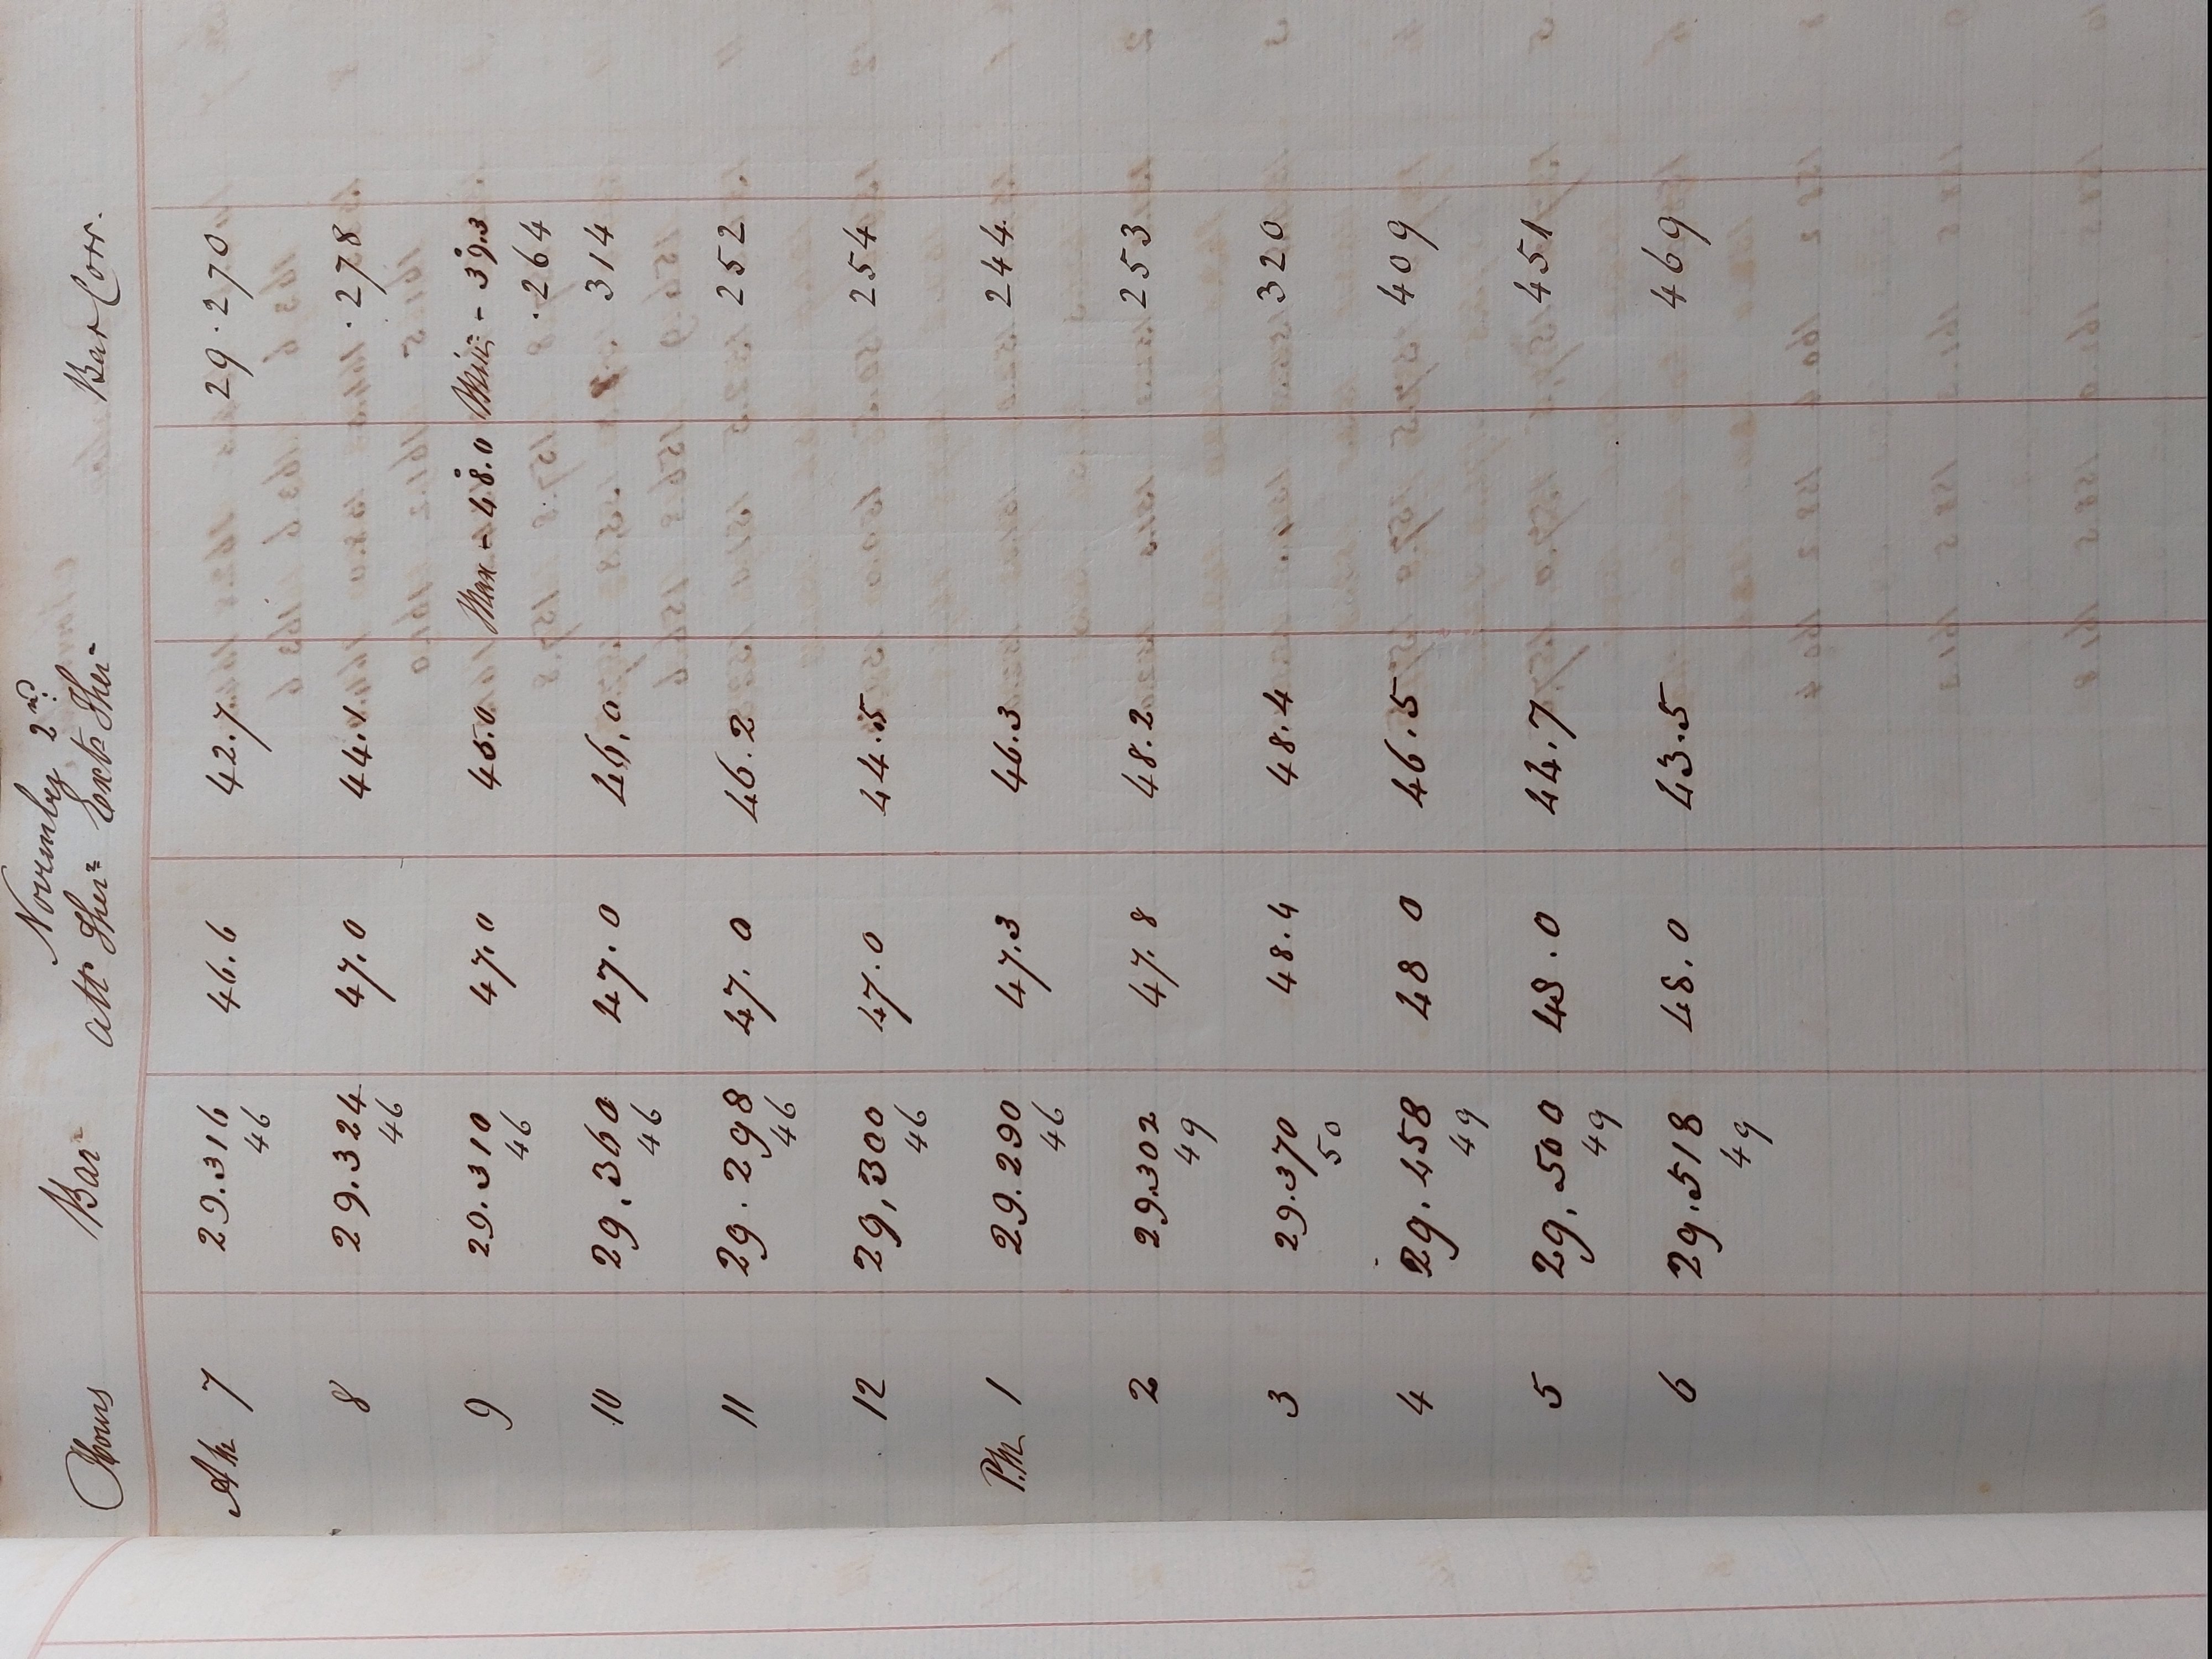 November 2nd.
Hours Bar- Att. Ther- Ext. Ther- Bar Corr.
AM 7 29.316 46.6 42.7 29.270
46
8 29.324 47.0 44.1 .278
46
9 29.310 47.0 45.0 Max - 48.0 Min - 39.3
46 .264
10 29,360 47.0 46,0 314
46
11 29.298 47.0 46.2 252
46
12 29,300 47.0 44.5 254
46
P.M 1 29.290 47.3 46.3 244
46
2 29.302 47.8 48.2 253
49
3 29.370 48.4 48.4 320
50
4 29.458 48 0 46.5 409
49
5 29,500 48.0 44.7 451
49
6 29.518 48.0 43.5 469
49